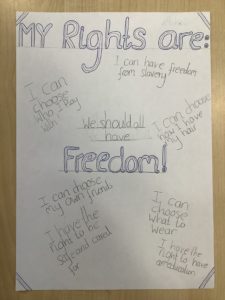 MY Rights are:
I can have freedom
from slavery
I can
choose
who I
I can choose
how I have
my hair
We should all
have
Freedom!
I can choose
my own friends
I can
choose
what to
wear
I have the
right to be
safe and cared
for
I have the
right to have
an education